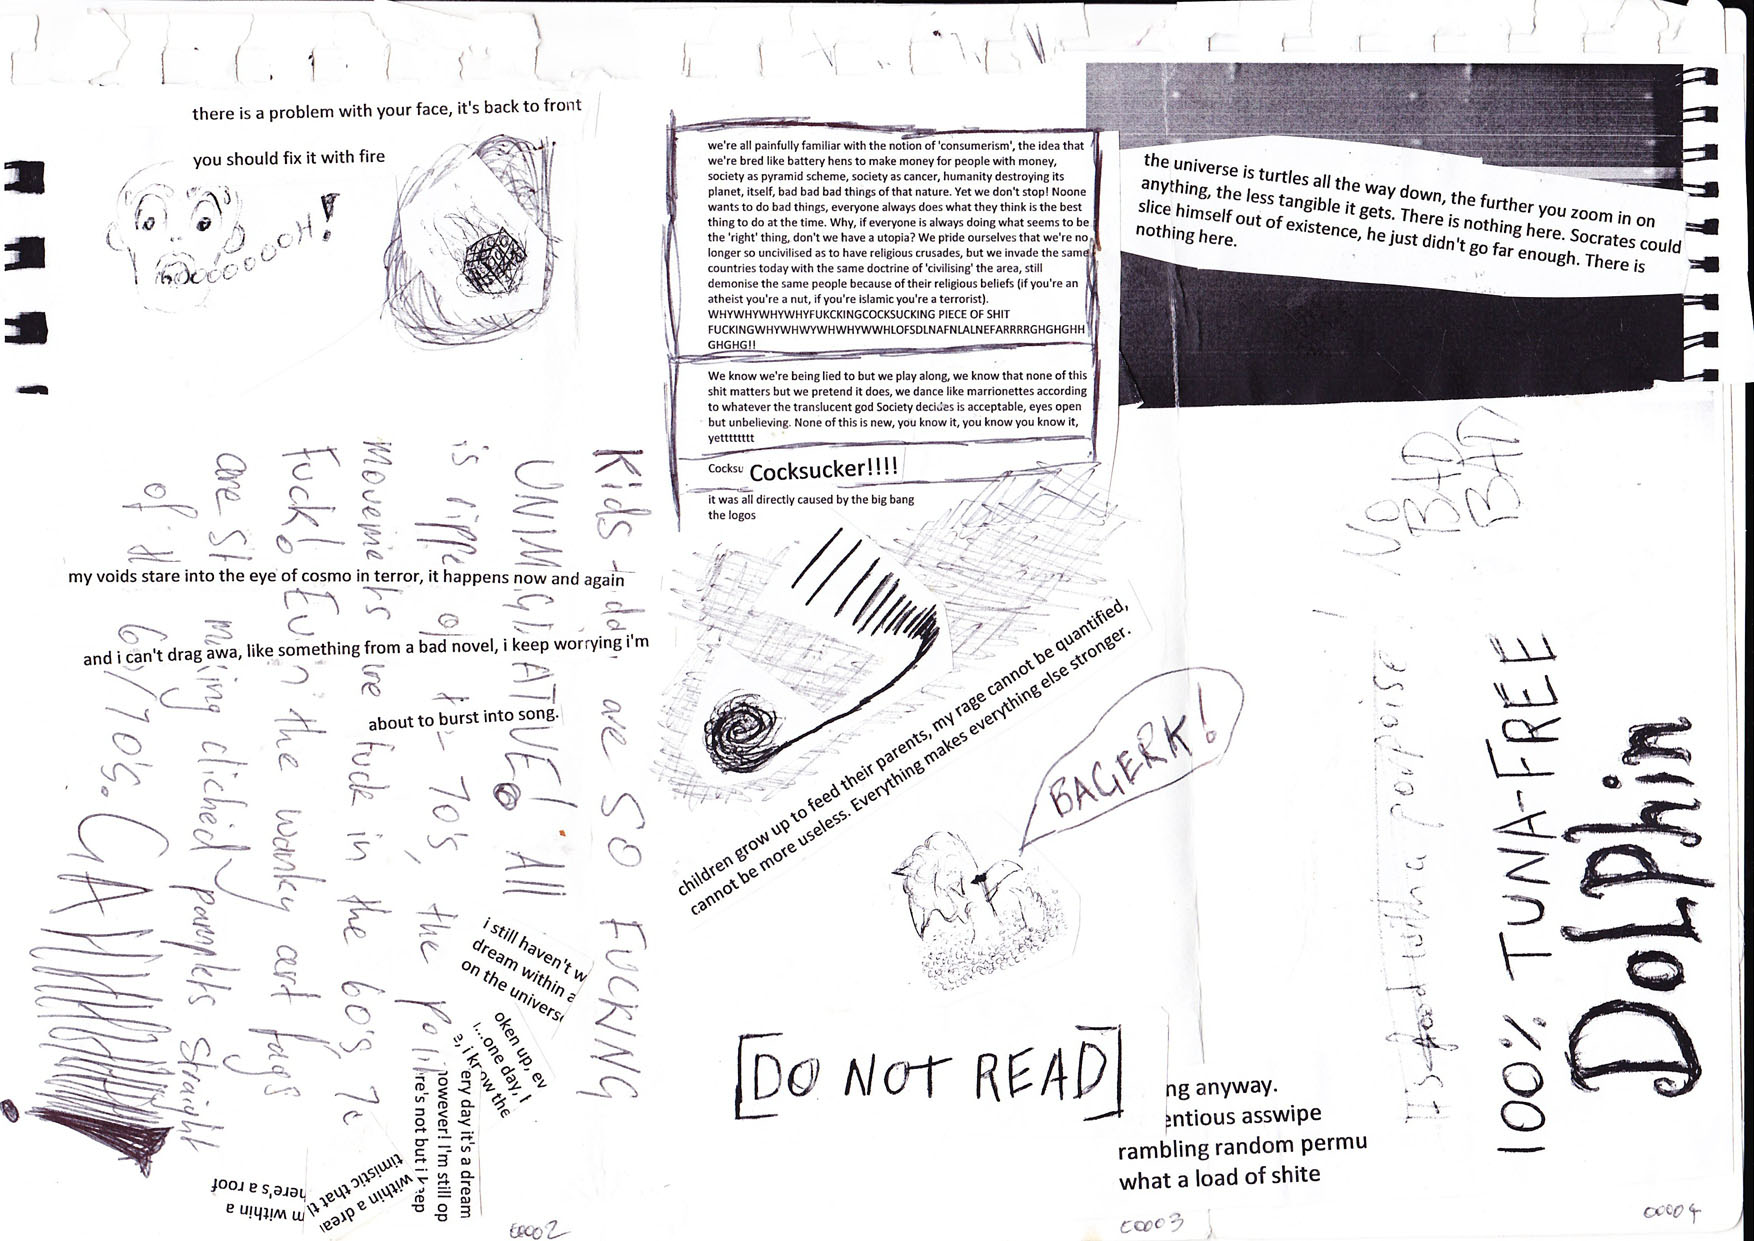 there is a problem with your face, it's back to front
you should fix it with fire
OOOOOOOOH!
my voids stare into the eye of cosmo in terror, it happens now and again
and i can't drag awa, like something from a bad novel, i keep worrying i'm
about to burst into song.
Kids are SO FUCKING
UNIM ATIVE! All
is 70's, the
movements are fuck in the 60's, 70
Fuck! Even the wanky art fags
are clichéd straight
of 60/70's. GA
i still haven't w
dream within a
on the univers
oken up, ev
I...one day, I
e, i know the
ery day it's a dream
owever! I'm still op
re's not but i keep
timistic that t
within a drea
m within a
here's a roof
00002
we're all painfully familiar with the notion of 'consumerism', the idea that
we're bred like battery hens to make money for people with money,
society as pyramid scheme, society as cancer, humanity destroying its
planet, itself, bad bad bad things of that nature. Yet we don't stop! Noone
wants to do bad things, everyone always does what they think is the best
thing to do at the time. Why, if everyone is always doing what seems to be
the 'right' thing, don't we have a utopia? We pride ourselves that we're no
longer so uncivilised as to have religious crusades, but we invade the same
countries today with the same doctrine of 'civilising' the area, still
demonise the same people because of their religious beliefs (if you're an
atheist you're a nut, if you're islamic you're a terrorist).
WHYWHYWHYWHYFUKCKINGCOCKSUCKING PIECE OF SHIT
FUCKINGWHYWHWYWHWHYWWHLOFSDLNAFNLALNEFARRRRGHGHGHH
GHGHG!!
We know we're being lied to but we play along, we know that none of this
shit matters but we pretend it does, we dance like marrionettes according
to whatever the translucent god Society decides is acceptable, eyes open
but unbelieving. None of this is new, you know it, you know you know it,
yetttttttt
Cocksu Cocksucker!!!!
it was all directly caused by the big bang
the logos
children grow up to feed their parents, my rage cannot be quantified,
cannot be more useless. Everything makes everything else stronger.
BAGERK!
[DO NOT READ]
ng anyway.
entious asswipe
rambling random permu
what a load of shite
00003
the universe is turtles all the way down, the further you zoom in on
anything, the less tangible it gets. There is nothing here. Socrates could
slice himself out of existence, he just didn't go far enough. There is
nothing here.
NO
BAD
BAD
It's food with a porpoise!
100% TUNA-FREE
DOLPhin
00004